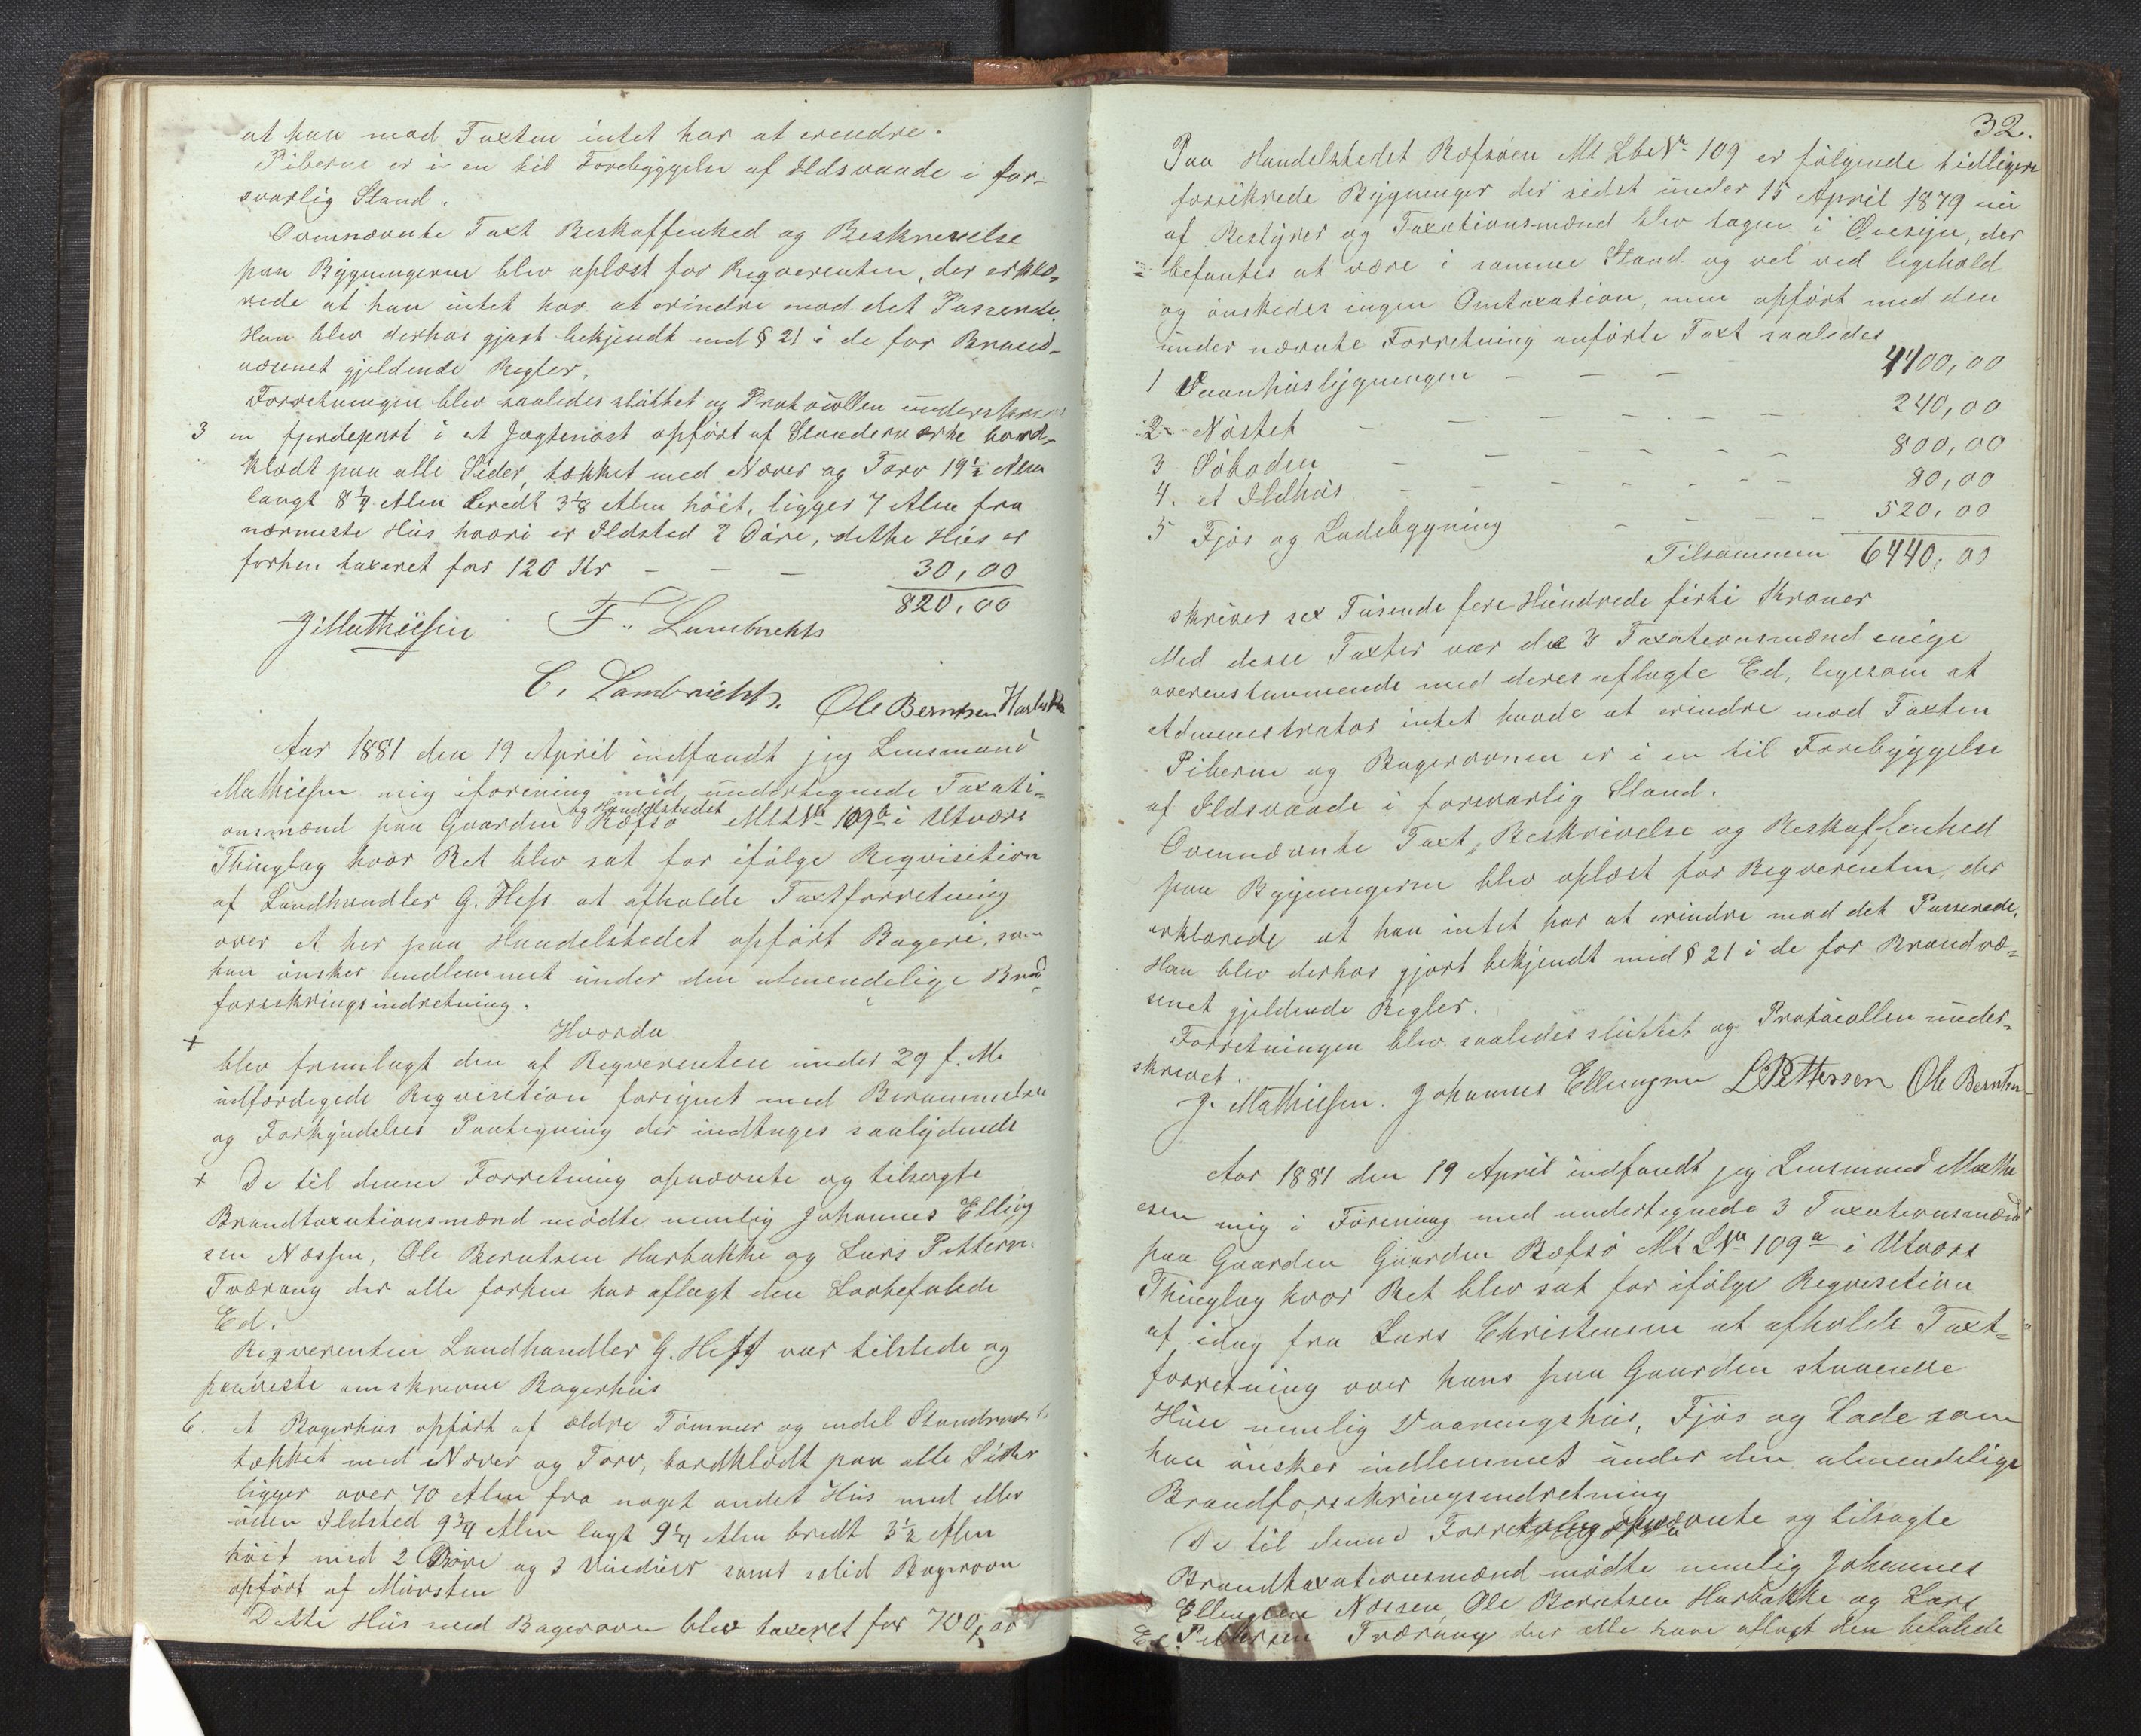 at han mod Taxten intet har at erindre.
Piberne er i en til Forebyggelse af Ildsvaade i for-
svarlig Stand.
Ovennævnte Taxt Beskaffenhed og Beskrivelse
paa Bygningerne blev oplæst for Reqverenten, der erklæ-
rede at han intet har at erindre mod det Passerede.
Han blev derhos gjort bekjendt med § 21 i de for Brand-
væsenet gjeldende Regler.
Forretningen blev saaledes sluttet og Protocollen underskrevet
3 en fjerdepart i et Jægtenøst opført af Standerværke bord-
klædt paa alle Sider, tækket med Næver og Torv 19½ Alen
langt 8¼ Alen bredt 3⅛ Alen høit, ligger 7 Alen fra
nærmeste Hus hvori er Ildsted 2 Døre, dette Hus er
forhen taxeret for 120 Kr - - - 30,00
820,00
J. Mathiesen F. Lambrechts
C. Lambrechts. Ole Berntsen Harbakk
Aar 1881 den 19 April indfandt jeg Lensmand
Mathiesen mig iforening med undertegnede Taxati-
onsmænd paa Gaarden og Handelstedet Ræfsø Mt L No 109b i Utværs
Thinglag hvor Ret blev sat for ifølge Reqvisition
af Landhandler G. Hess at afholde Taxtforretning
over et her paa Handelstedet opført Bageri, som
han ønsker indlemmet under den almendelige Brand
forsikringsindretning.
Hvorda
+
blev fremlagt den af Reqverenten under 29 f. M.
udfærdigede Reqvisition forsynet med Berammelses
og Forkyndelses Paategning der indtages saalydende
+ De til denne Forretning opnævnte og tilsagte
Brandtaxationsmænd mødte nemlig Johannes Elling
sen Næssen, Ole Berntsen Harbakke og Lars Pettersen
Tværang der alle forhen har aflagt den Lovbefalede
Ed.
Reqverenten Landhandler G. Hess var tilstede og
paaviste omskrevne Bagerhus
6. et Bagerhus opført af ældre Tømmer og endel Standerværk
tækket med Næver og Torv, bordklædt paa alle Sider
ligger over 70 Alen fra noget andet Hus med eller
uden Ildsted 9¾ Alen lagt 9¼ Alen bredt 3½ Alen
høit med 2 Døre og 3 Vinduer samt solid Bagerovn
opført af Mursten
Dette Hus med Bagerovn blev taxeret for 700,00
32.
Paa Handelstedet Ræfsøen Mt Lbe No 109 er følgende tidligere
forsikrede Bygninger der sidst under 15 April 1879 nu
af Bestyrer og Taxationsmænd blev tagen i Øiesyn, der
befantes at være i samme Stand og vel ved ligehold
og ønskedes ingen Omtaxation, men opført med den
under nævnte Forretning anførte Taxt saaledes
1 Vaanhusbygningen - - - 4400,00
2 Nøstet - - - - - 240,00
3 Søboden - - - - - 800,00
4. et Ildhus - - - - - - 80,00
5 Fjøs og Ladebygning - - - - 520,00
Tilsammen 6440,00
skriver sex Tusende fere Hundrede førti Kroner
Med desse Taxter var de 3 Taxationsmænd enige
overenstemmende med deres aflagte Ed, ligesom at
Administrator intet havde at erindre mod Taxten
Piberne og Bagerovnen er i en til Forebyggelse
af Ildsvaade i forsvarlig Stand.
Ovennævnte Taxt, Beskrivelse og Beskaffenhed
paa Bygningerne blev oplæst for Reqverenten, der
erklærede at han intet har at erindre mod det Passerede,
Han blev derhos gjort bekjendt med § 21 i de for Brandvæ-
senet gjeldende Regler.
Forretningen blev saaledes sluttet og Protocollen under-
skrevet.
J. Mathiesen. Johannes Ellingsen L Pettersen Ole Berntsen
Aar 1881 den 19 April indfandt jeg Lensmand Mathi
esen mig i Forening med undertegnede 3 Taxationsmænd
paa Gaarden Gaarden Ræfsø Mt L No 109a i Utværs
Thinglag hvor Ret blev sat for ifølge Reqvesition
af idag fra Lars Christensen at afholde Taxt-
forretning over hans paa Gaarden staaende
Huse nemlig Vaaningshus, Fjøs og Lade som
han ønsker indlemmet under den almendelige
Brandforsikringsindretning
De til denne Forretning opnævnte og tilsagte
Brandtaxationsmænd mødte nemlig Johannes
Ellingsen Næssen, Ole Berntsen Harbakke og Lars
Pettersen Tværang der alle have aflagt den befalede
Ed.